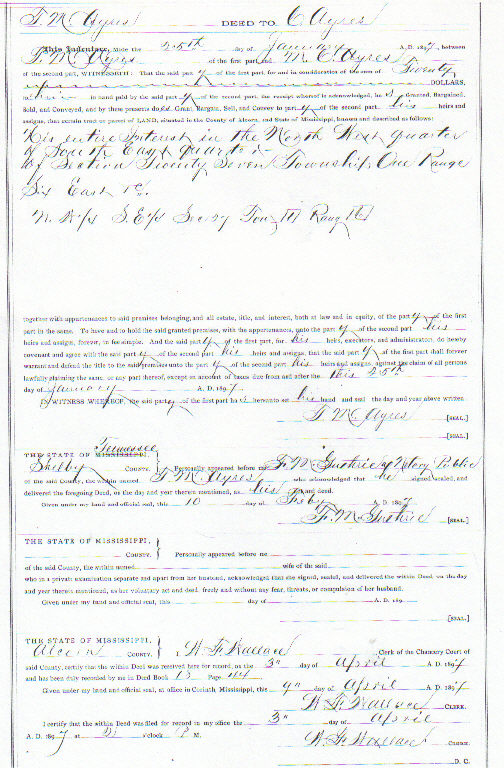 T. M. Ayres DEED TO C Ayres
This Indenture, Made the 25th day of January A. D. 1897, between
T. M. Ayres of the first part and M. C. Ayres
of the second part, WITNESSETH: That the said party of the first part, for and in consideration of the sum of Twenty
DOLLARS,
to him in hand paid by the said party of the second part, the receipt whereof is acknowledged, has Granted, Bargained,
Sold, and Conveyed, and by these presents does Grant, Bargain, Sell, and Convey to party of the second part, his heirs and
assigns, that certain tract or parcel of LAND, situated in the County of Alcorn, and State of Mississippi, known and described as follows:
His entire interest in the North West quarter
of South East quarter
of Section Twenty Seven Township One Range
Six East
N. W/4 S. E/4 Sec 27 Tow 1 Rang 6
together with appurtenances to said premises belonging, and all estate, title, and interest, both at law and in equity, of the party of the first
part in the same. To have and to hold the said granted premises, with the appurtenances, unto the party of the second part his
heirs and assigns, forever, in fee simple. And the said party of the first part, for his heirs, executors, and administrators, do hereby
covenant and agree with the said party of the second part his heirs and assigns, that the said party of the first part shall forever
warrant and defend the title to the said premises unto the party of the second part his heirs and assigns against the claim of all persons
lawfully claiming the same, or any part thereof, except on account of taxes due from and after the this 25th
day of January A. D. 1897.
IN WITNESS WHEREOF, the said party of the first part has hereunto set his hand and seal the day and year above written
T. M. Ayres [SEAL.]
[SEAL.]
Tennessee
THE STATE OF MISSISSIPPI,
Shelby COUNTY. Personally appeared before me F. M. Guthrie a Notary Public
of the said County, the within named T. M. Ayres who acknowledged that he signed, sealed, and
delivered the foregoing Deed, on the day and year therein mentioned, as his act and deed.
Given under my hand and official seal, this 10 day of Feby A. D. 1897
F. M. Guthrie [SEAL.]
THE STATE OF MISSISSIPPI,
COUNTY. Personally appeared before me
of the said County, the within named wife of the said
who in a private examination separate and apart from her husband, acknowledged that she signed, sealed, and delivered the within Deed, on the day
and year therein mentioned, as her voluntary act and deed, freely and without any fear, threats, or compulsion of her husband.
Given under my hand and official seal, this day of A. D. 189
[SEAL.]
THE STATE OF MISSISSIPPI,
Alcorn COUNTY. W. F. Wallace Clerk of the Chancery Court of
said County, certify that the within Deed was received here for record, on the 3" day of April A. D. 1897
and has been duly recorded by me in Deed Book Page
Given under my hand and official seal, at office in Corinth, Mississippi, this 9" day of April A. D. 1897
W. F. Wallace CLERK.
I certify that the within Deed was filed for record in my office the 3" day of April
A. D. 1897 at o'clock P. M.
W. F. Wallace CLERK.
D. C.